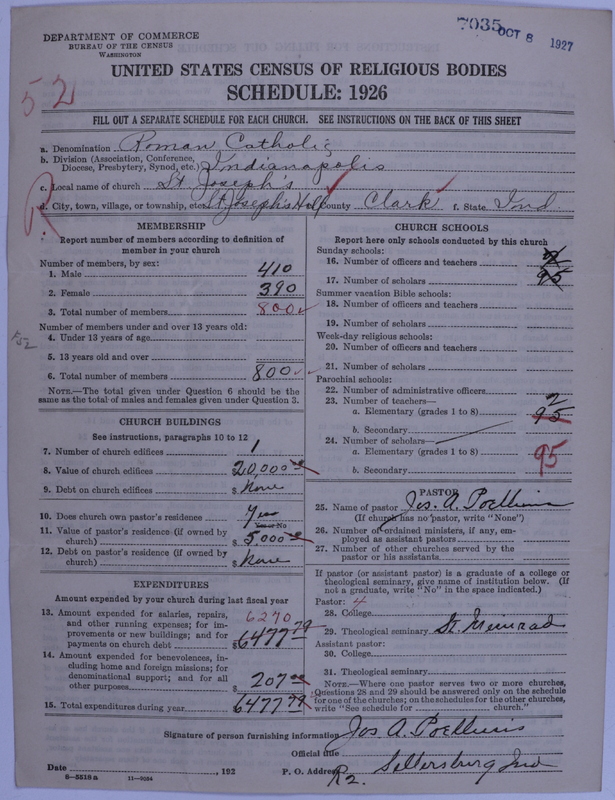 7035 OCT 8 1927
DEPARTMENT OF COMMERCE
BUREAU OF THE CENSUS
WASHINGTON
UNITED STATES CENSUS OF RELIGIOUS BODIES
SCHEDULE: 1926
52
FILL OUT A SEPARATE SCHEDULE FOR EACH CHURCH. SEE INSTRUCTIONS ON THE BACK OF THIS SHEET
a. Denomination Roman Catholic
b. Division (Association, Conference,
Diocese, Presbytery, Synod, etc.) Indianapolis
c. Local name of church St Joseph's
d. City, town, village, or township, etc. St Joseph's Hill County Clark f. State Ind
R
MEMBERSHIP
Report number of members according to definition of
member in your church
Number of members, by sex:
1. Male 410
2. Female 390
3. Total number of members 800
Number of members under and over 13 years old:
4. Under 13 years of age
5. 13 years old and over
6. Total number of members 800
NOTE.—The total given under Question 6 should be
same as the total of males and females given under Question 3.
CHURCH BUILDINGS
See instructions, paragraphs 10 to 12
7. Number of church edifices 1
8. Value of church edifices $ 20,000
9. Debt on church edifices $ None
10. Does church own pastor's residence Yes
Yes or No
11. Value of pastor's residence (if owned by
church) $ 5000
12. Debt on pastor's residence (if owned by
church) $ None
EXPENDITURES
Amount expended by your church during last fiscal year
13. Amount expended for salaries, repairs, 6270
and other running expenses; for im-
provements or new buildings; and for
payments on church debt $ 6477 79
14. Amount expended for benevolences, in-
cluding home and foreign missions; for
denominational support; and for all
other purposes $ 207
15. Total expenditures during year $ 6477 79
CHURCH SCHOOLS
Report here only schools conducted by this church
Sunday schools:
16. Number of officers and teachers 2
17. Number of scholars 95
Summer vacation Bible schools:
18. Number of officers and teachers
19. Number of scholars
Week-day religious schools:
20. Number of officers and teachers
21. Number of scholars
Parochial schools:
22. Number of administrative officers
23. Number of teachers— 2
a. Elementary (grades 1 to 8) 95
b. Secondary
24. Number of scholars—
a. Elementary (grades 1 to 8) 95
b. Secondary
PASTOR
25. Name of pastor Jos. A. Poelluis
(If church has no pastor, write "None")
26. Number of ordained ministers, if any, em-
ployed as assistant pastors
27. Number of other churches served by the
pastor or his assistants
If pastor (or assistant pastor) is a graduate of a college or
theological seminary, give name of institution below. (If
not a graduate, write "No" in the space indicated.)
Pastor: 4
28. College
29. Theological seminary St. Meinrad
Assistant pastor:
30. College
31. Theological seminary
NOTE.—Where one pastor serves two or more churches,
Questions 28 and 29 should be answered only on the schedule
for one of the churches; on the schedules for the other churches,
write "See schedule for church."
Signature of person furnishing information Jos A. Poelluis
Official title
Date , 192 P. O. Address R2. Sellersburg Ind
8-5518a 11-9084